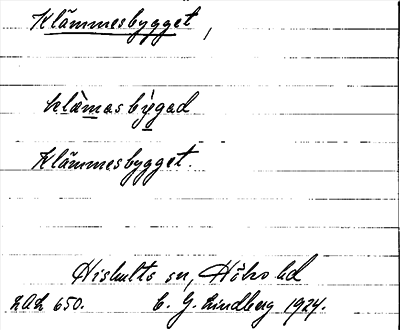 Klämmesbygget,
klä̀masby̆gad
Klämmesbygget.
Hishults sn, Höks hd
LAL 650. C. G. Lindberg 1924.